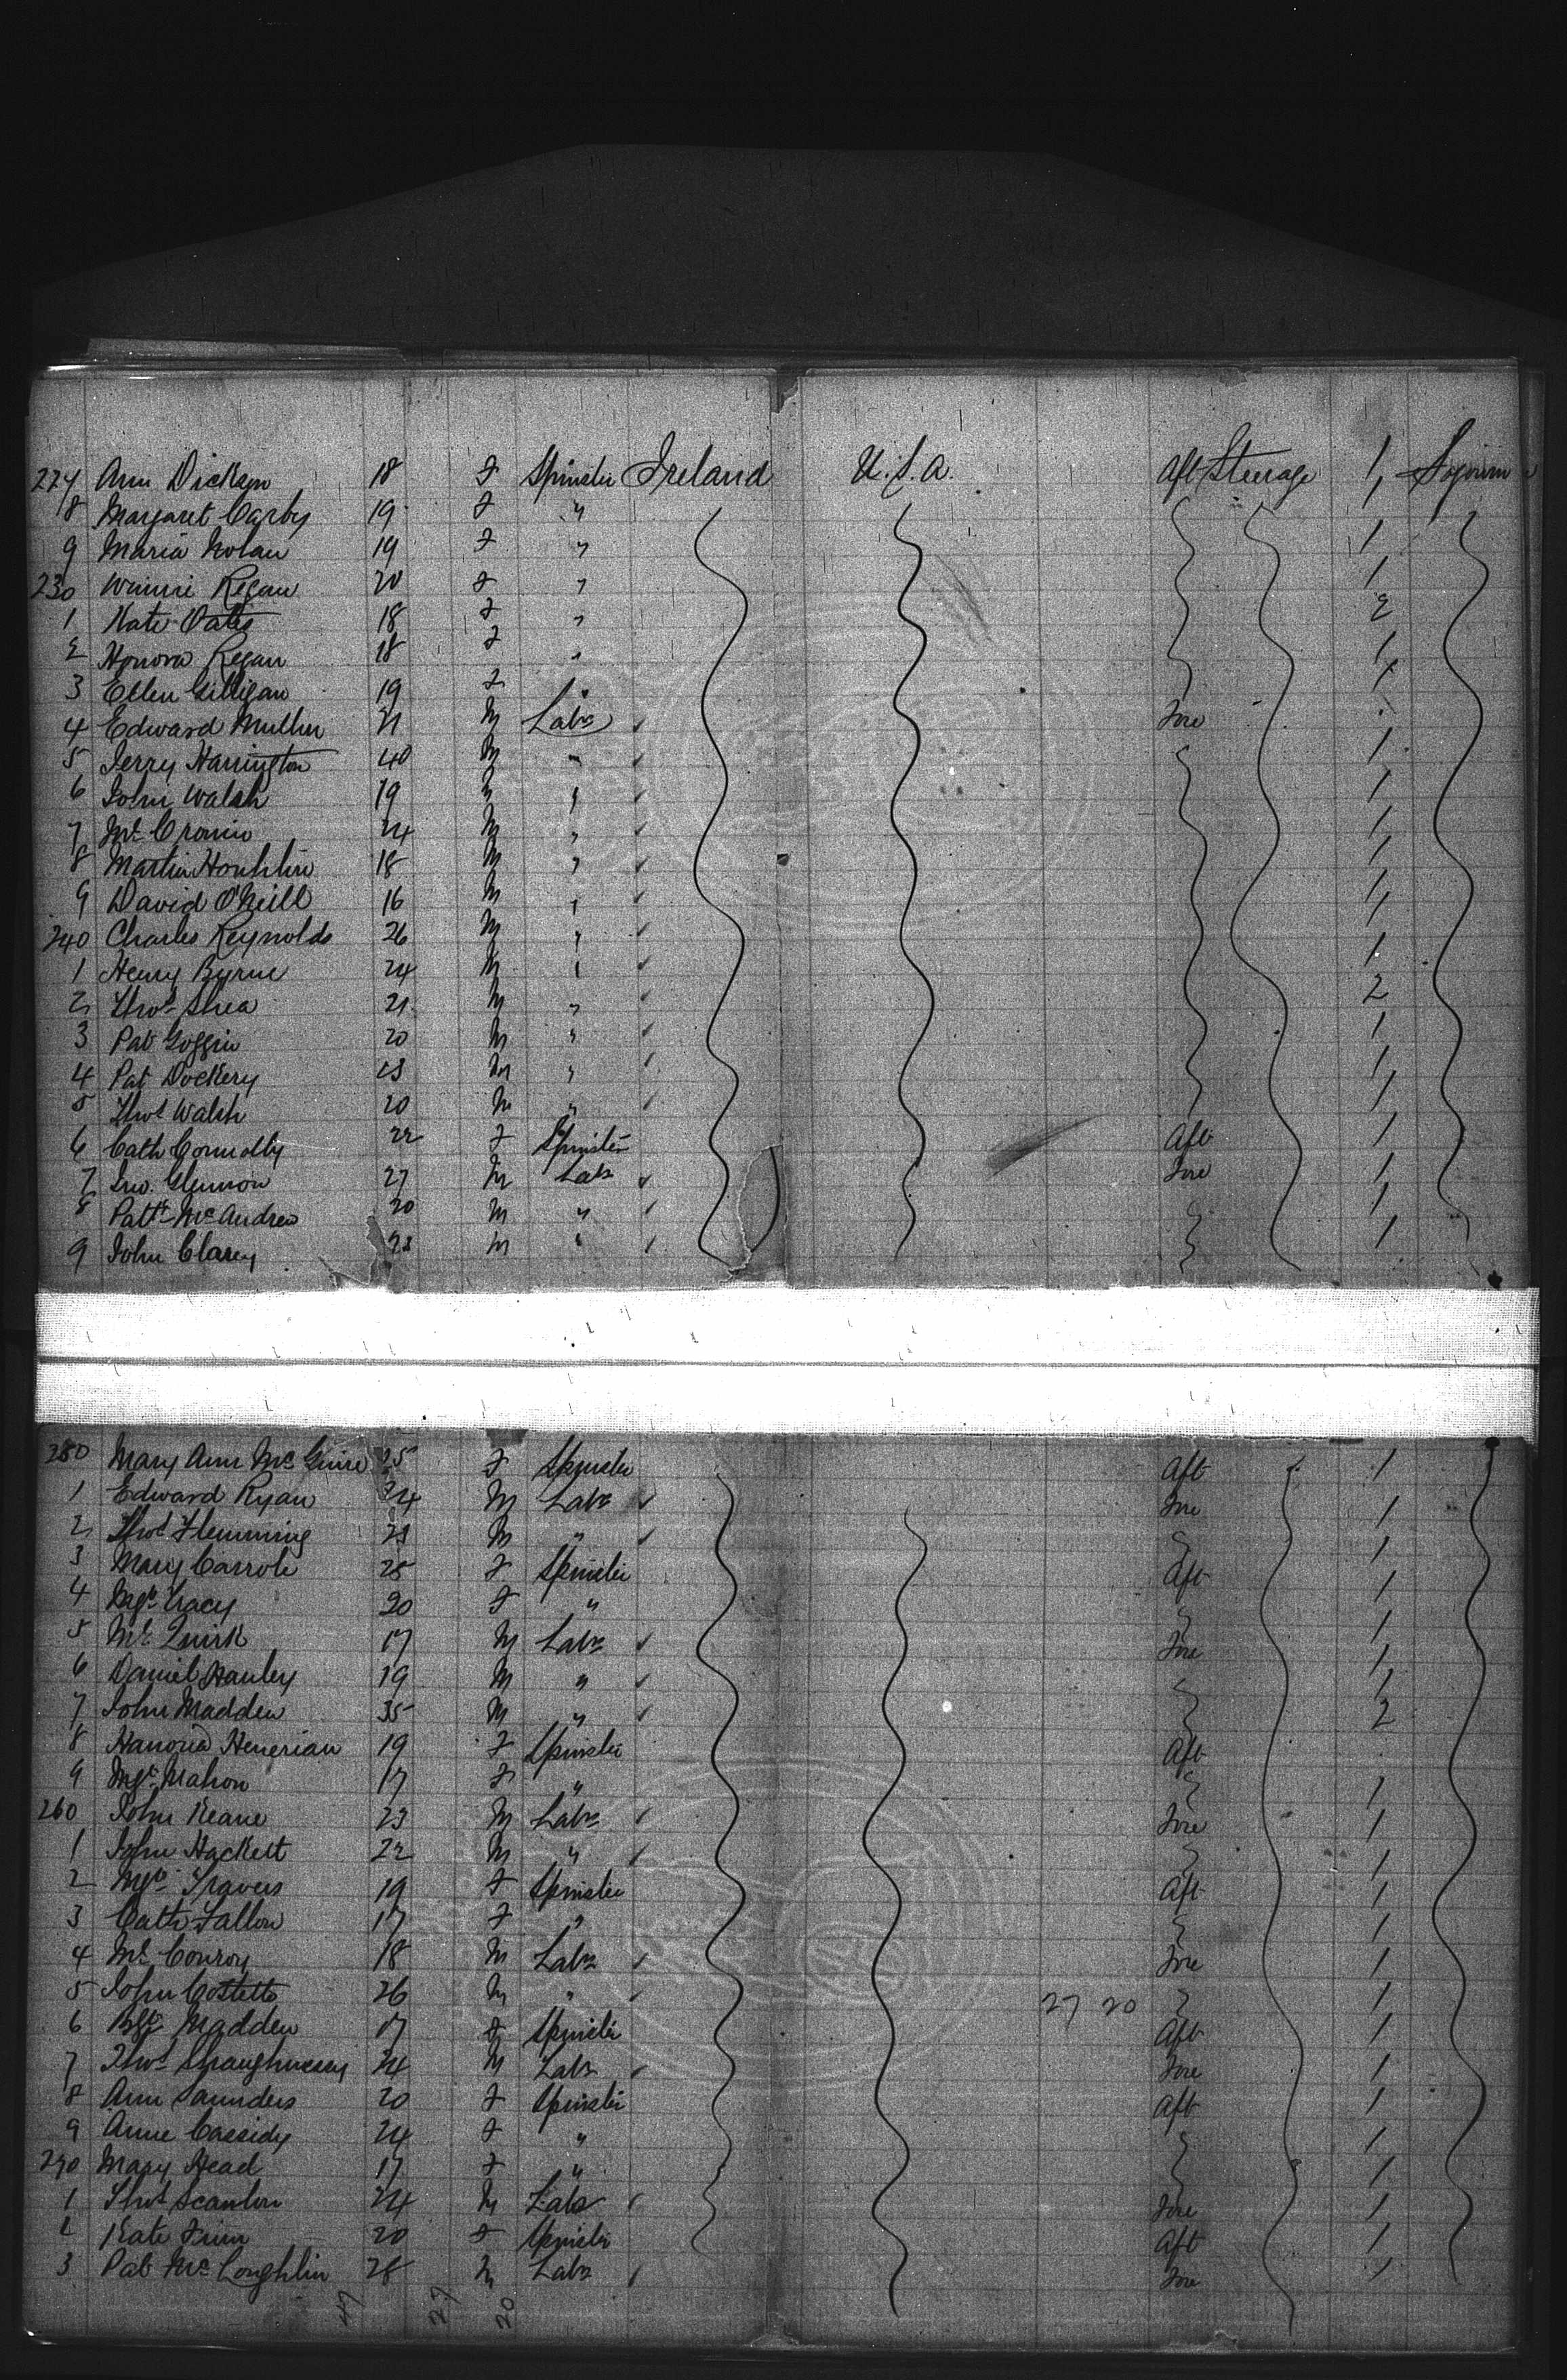 227 Ann Dickson 18 F Spinster Ireland U.S.A. Aft Steerage 1 Sojourn
8 Margaret Carby 19 F " 1
9 Maria Nolan 19 F " 1
230 Winnie Regan 20 F " 1
1 Kate Oates 18 F " 2
2 Honora Regan 18 F " 1
3 Ellen Gilligan 19 F " 1
4 Edward Mullin 21 M Labr Fore
5 Jerry Harrington 40 M " 1
6 John Walsh 19 M " 1
7 Ml Cronin 24 M " 1
8 Martin 18 M " 1
9 David O'Neill 16 M " 1
240 Charles Reynolds 26 M " 1
1 Henry Byrne 24 M " 1
2 Thos Shea 21 M " 2
3 Pat Goggin 20 M " 1
4 Pat Dockery 23 M " 1
5 Thos Walsh 20 M " 1
6 Cath Connolly 22 F Spinster Aft 1
7 Jno. Glennon 27 M Labr Fore 1
8 Patk McAndrew 20 M " 1
9 John Clarey 23 M " 1
250 Mary Ann McGuire 25 F Spinster Aft 1
1 Edward Ryan 24 M Labr Fore 1
2 Thos Flemming 21 M " 1
3 Mary Carrole 25 F Spinster Aft 1
4 Mgt Tracy 20 F " 1
5 Ml Quirk 17 M Labr Fore 1
6 Daniel Hanley 19 M " 1
7 John Madden 35 M " 2
8 Hanoria Henerian 19 F Spinster Aft
9 Mgt Mahon 17 F " 1
260 John Keane 23 M Labr Fore 1
1 John Hackett 22 M " 1
2 Mgt Travers 19 F Spinster Aft 1
3 Cath Fallon 17 F " 1
4 Ml Conroy 18 M Labr Fore 1
5 John Costello 26 M " 27 20 1
6 Bgt Madden 17 F Spinster Aft 1
7 Thos Shaughnessy 24 M Labr Fore 1
8 Ann Saunders 20 F Spinster Aft 1
9 Anne Cassidy 24 F " 1
270 Mary Head 17 F " 1
1 Thos Scanlon 24 M Labr Fore 1
2 Kate Finn 20 F Spinster Aft 1
3 Pat McLoughlin 28 M Labr Fore 1
47 27 20